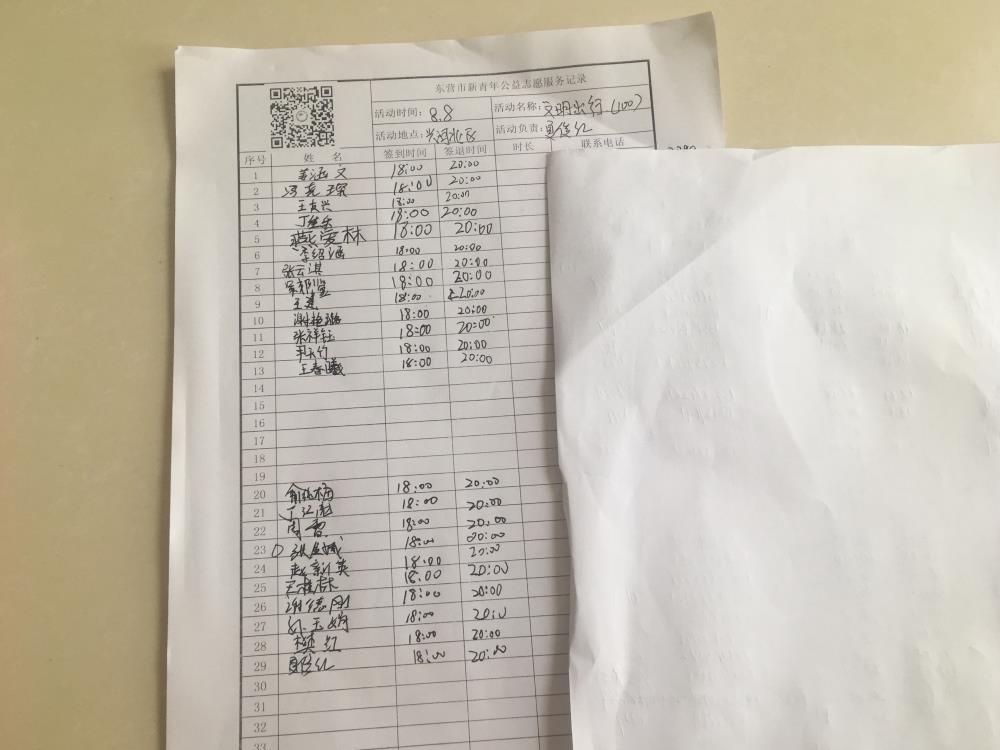 东营市新青年公益志愿服务记录
活动时间: 8.8 活动名称: 文明出行(100)
活动地点: 活动负责:
序号 姓名 签到时间 签退时间 时长 联系电话
1 姜涵文 18:00 20:00
2 18:00 20:00
3 王友兴 18:00 20:00
4 18:00 20:00
5 燕爱林 18:00 20:00
6 李绍涵 18:00 20:00
7 张云淇 18:00 20:00
8 18:00 20:00
9 王建 18:00 20:00
10 18:00 20:00
11 张祥钰 18:00 20:00
12 尹天竹 18:00 20:00
13 王春曦 18:00 20:00
14
15
16
17
18
19
20 18:00 20:00
21 18:00 20:00
22 周雪 18:00 20:00
23 18:00 20:00
24 赵新英 18:00 20:00
25 王桂林 18:00 20:00
26 谢德刚 18:00 20:00
27 孙玉娟 18:00 20:0
28 樊红 18:00 20:00
29 18:00 20:00
30
31
32
33